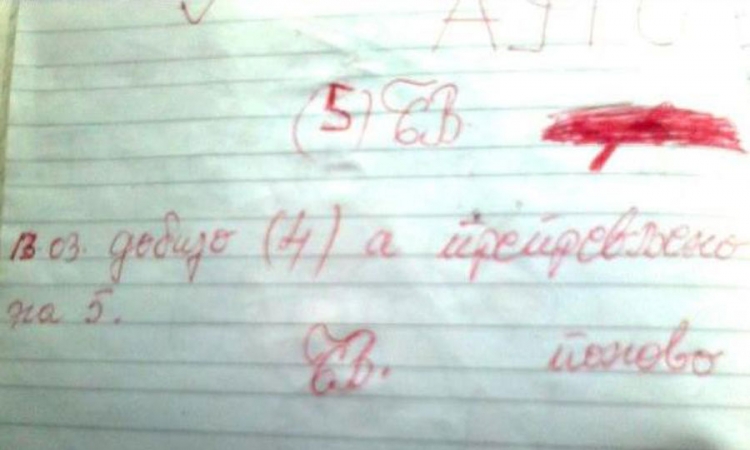 (5) ЕВ
воз. добијо (4) а преправљено
на 5.
ЕВ. поново